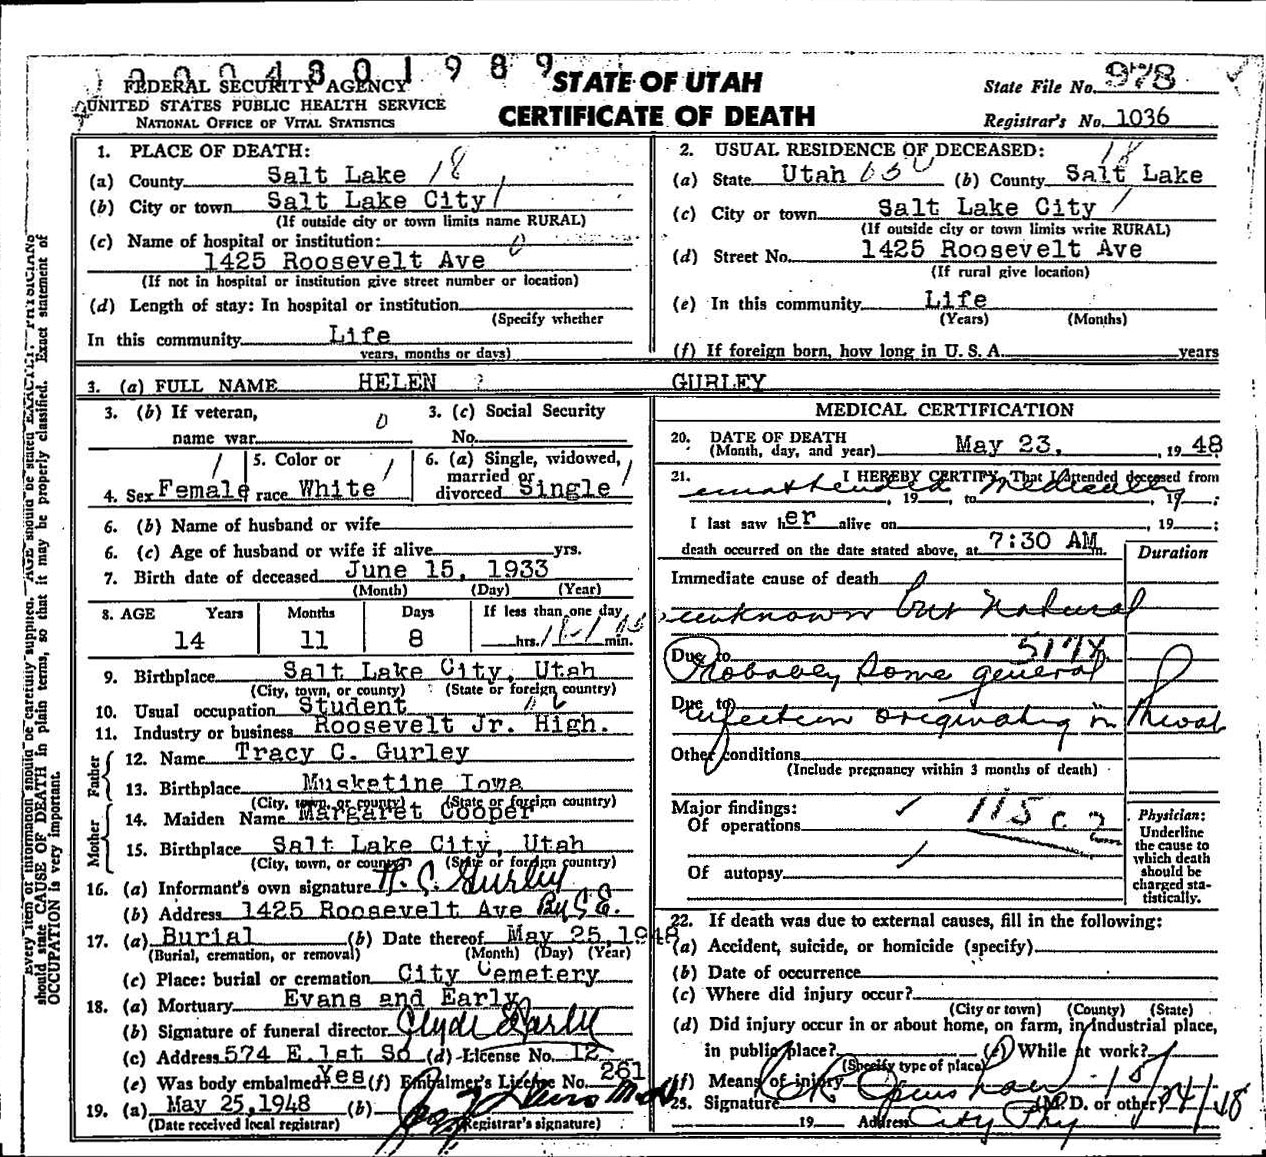 000480 1989
FEDERAL SECURITY AGENCY
UNITED STATES PUBLIC HEALTH SERVICE
NATIONAL OFFICE OF VITAL STATISTICS
STATE OF UTAH
CERTIFICATE OF DEATH
State File No. 978
Registrar's No. 1036
1. PLACE OF DEATH: 18
(a) County Salt Lake
(b) City or town Salt Lake City /
(If outside city or town limits name RURAL)
(c) Name of hospital or institution: 0
1425 Roosevelt Ave
(If not in hospital or institution give street number or location)
(d) Length of stay: In hospital or institution
(Specify whether
In this community Life
years, months or days)
2. USUAL RESIDENCE OF DECEASED: 18
(a) State Utah (b) County Salt Lake
(c) City or town Salt Lake City /
(If outside city or town limits write RURAL)
(d) Street No. 1425 Roosevelt Ave
(If rural give location)
(e) In this community Life
(Years) (Months)
(f) If foreign born, how long in U. S. A. years
3. (a) FULL NAME HELEN ? GURLEY
3. (b) If veteran, 0 3. (c) Social Security
name war No.
4. Sex Female / 5. Color or race White / 6. (a) Single, widowed, married or divorced Single /
6. (b) Name of husband or wife
6. (c) Age of husband or wife if alive yrs.
7. Birth date of deceased June 15, 1933
(Month) (Day) (Year)
8. AGE Years Months Days If less than one day
14 11 8 hrs. min.
9. Birthplace Salt Lake City, Utah
(City, town, or county) (State or foreign country)
10. Usual occupation Student
11. Industry or business Roosevelt Jr. High.
Father
12. Name Tracy C. Gurley
13. Birthplace Musketine Iowa
(City, town, or county) (State or foreign country)
Mother
14. Maiden Name Margaret Cooper
15. Birthplace Salt Lake City, Utah
(City, town, or county) (State or foreign country)
16. (a) Informant's own signature Gurley
(b) Address 1425 Roosevelt Ave By C.E.
17. (a) Burial (b) Date thereof May 25, 1948
(Burial, cremation, or removal) (Month) (Day) (Year)
(c) Place: burial or cremation City Cemetery
18. (a) Mortuary Evans and Early
(b) Signature of funeral director Clyde Early
(c) Address 574 E.1st So (d) License No. 12
(e) Was body embalmed? Yes (f) Embalmer's License No. 261
19. (a) May 25,1948 (b)
(Date received local registrar) (Registrar's signature)
MEDICAL CERTIFICATION
20. DATE OF DEATH
(Month, day, and year) May 23, 1948
21. I HEREBY CERTIFY, That I attended deceased from
unattended , 19 , to Medically , 19 ;
I last saw her alive on , 19 ;
death occurred on the date stated above, at 7:30 AM m. Duration
Immediate cause of death
unknown but Natural
Due to 517X
Probably some general
Due to
infection originating in throat
Other conditions
(Include pregnancy within 3 months of death)
Major findings:
Of operations 115 c 2
Of autopsy
Physician:
Underline
the cause to
which death
should be
charged sta-
tistically.
22. If death was due to external causes, fill in the following:
(a) Accident, suicide, or homicide (specify)
(b) Date of occurrence
(c) Where did injury occur?
(City or town) (County) (State)
(d) Did injury occur in or about home, on farm, in industrial place,
in public place? (e) While at work?
(Specify type of place)
(f) Means of injury
23. Signature (M. D. or other)
19 Address City Phy
should state CAUSE OF DEATH in plain terms, so that it may be properly classified. Exact statement of
OCCUPATION is very important.